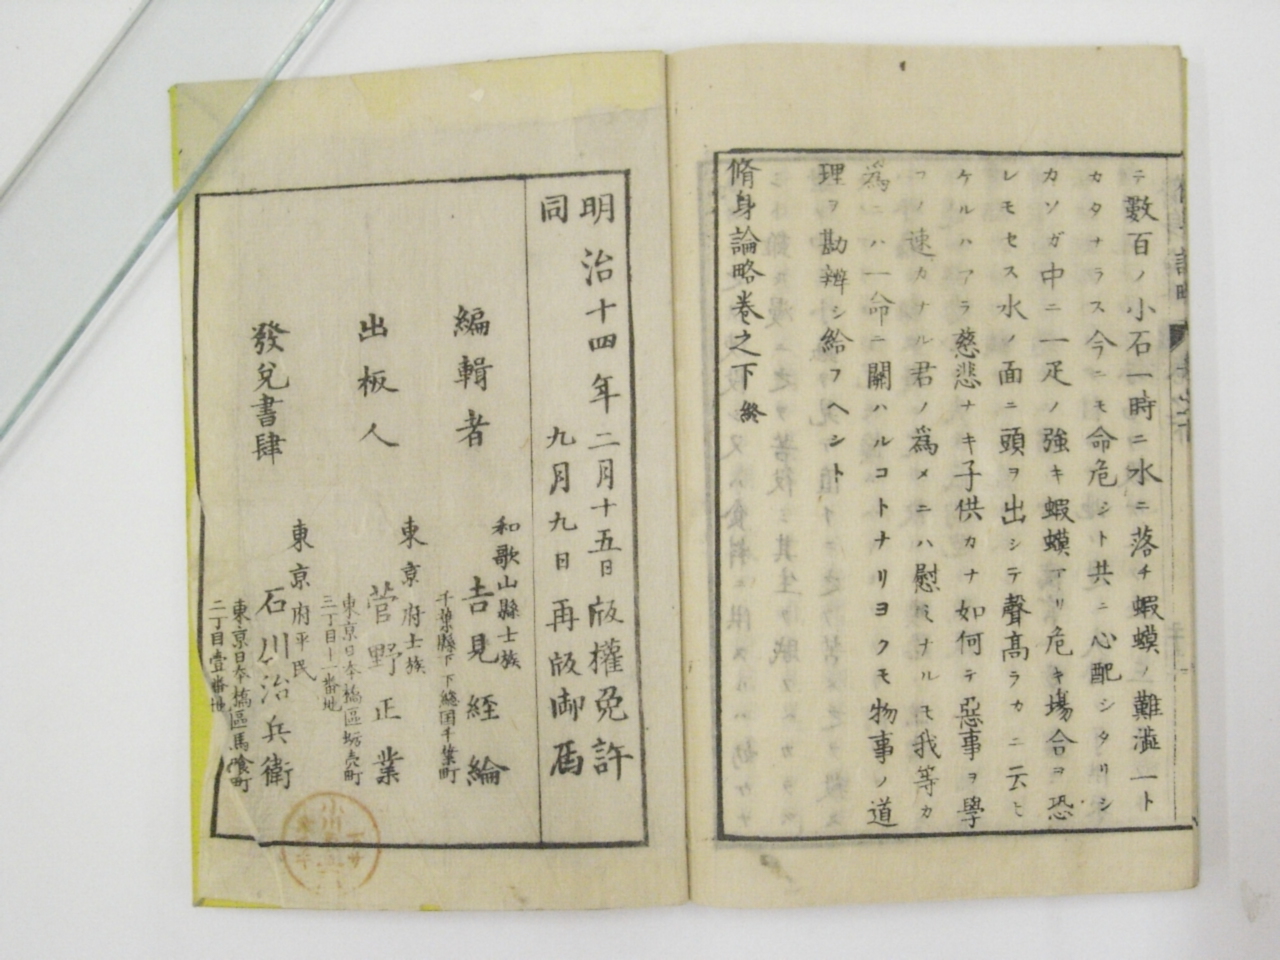 テ數百ノ小石一時ニ水ニ落チ蝦蟆ノ難澁一ト
カタナラス今ニモ命危シト共ニ心配シタリシ
カソガ中ニ一疋ノ強キ蝦蟆アリ危キ場合ヲ恐
レモセス水ノ面ニ頭ヲ出シテ聲髙ラカニ云ヒ
ケルハアラ慈悲ナキ子供カナ如何テ惡事ヲ學
フノ速カナル君ノ爲メニハ慰ミナルモ我等カ
爲ニハ一命ニ關ハルコトナリヨクモ物事ノ道
理ヲ勘辨シ給フヘシト
脩身論略卷之下 終
明治十四年二月十五日版權免許
同 九月九日再版御届
編輯者
和歌山縣士族
吉見経綸
千葉縣下下總国千葉町
出板人
東京府士族
菅野正業
東京日本橋區
三丁目十一番地
發兌書肆
東京府平民
石川治兵衛
東京日本橋區馬喰町
二丁目壹番地